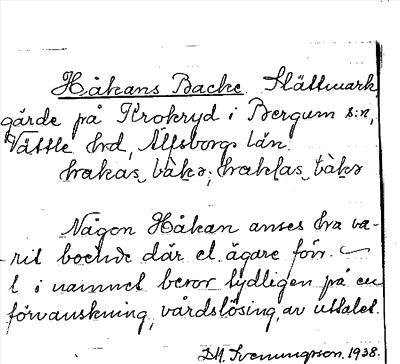 Håkans Backe. Slättmark,
gärde på Krokryd i Bergum s:n,
Vättle hrd, Älfsborgs län.
hakas bàkə; haklas bàkə
Någon Håkan anses ha va-
rit boende där el. ägare förr. –
l i namnet beror tydligen på en
förvanskning, vårdslösing, av uttalet.
D.M. Svenungsson. 1938.